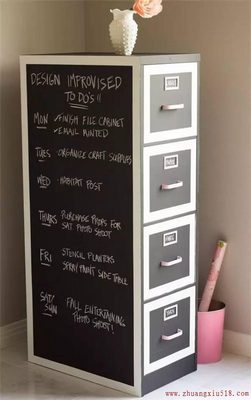 DESIGN IMPROVISED
TO DO'S!!
MON ✓FINISH FILE CABINET
✓EMAIL MINTED
TUES · ORGANIZE CRAFT SUPPLIES
WED · HABITAT POST
THURS · PURCHASE PROPS FOR
SAT. PHOTO SHOOT
FRI · STENCIL PLANTERS
· SPRAY PAINT SIDE TABLE
SAT/ FALL ENTERTAINING
SUN PHOTO SHOOT!
www.zhuangxiu518.com